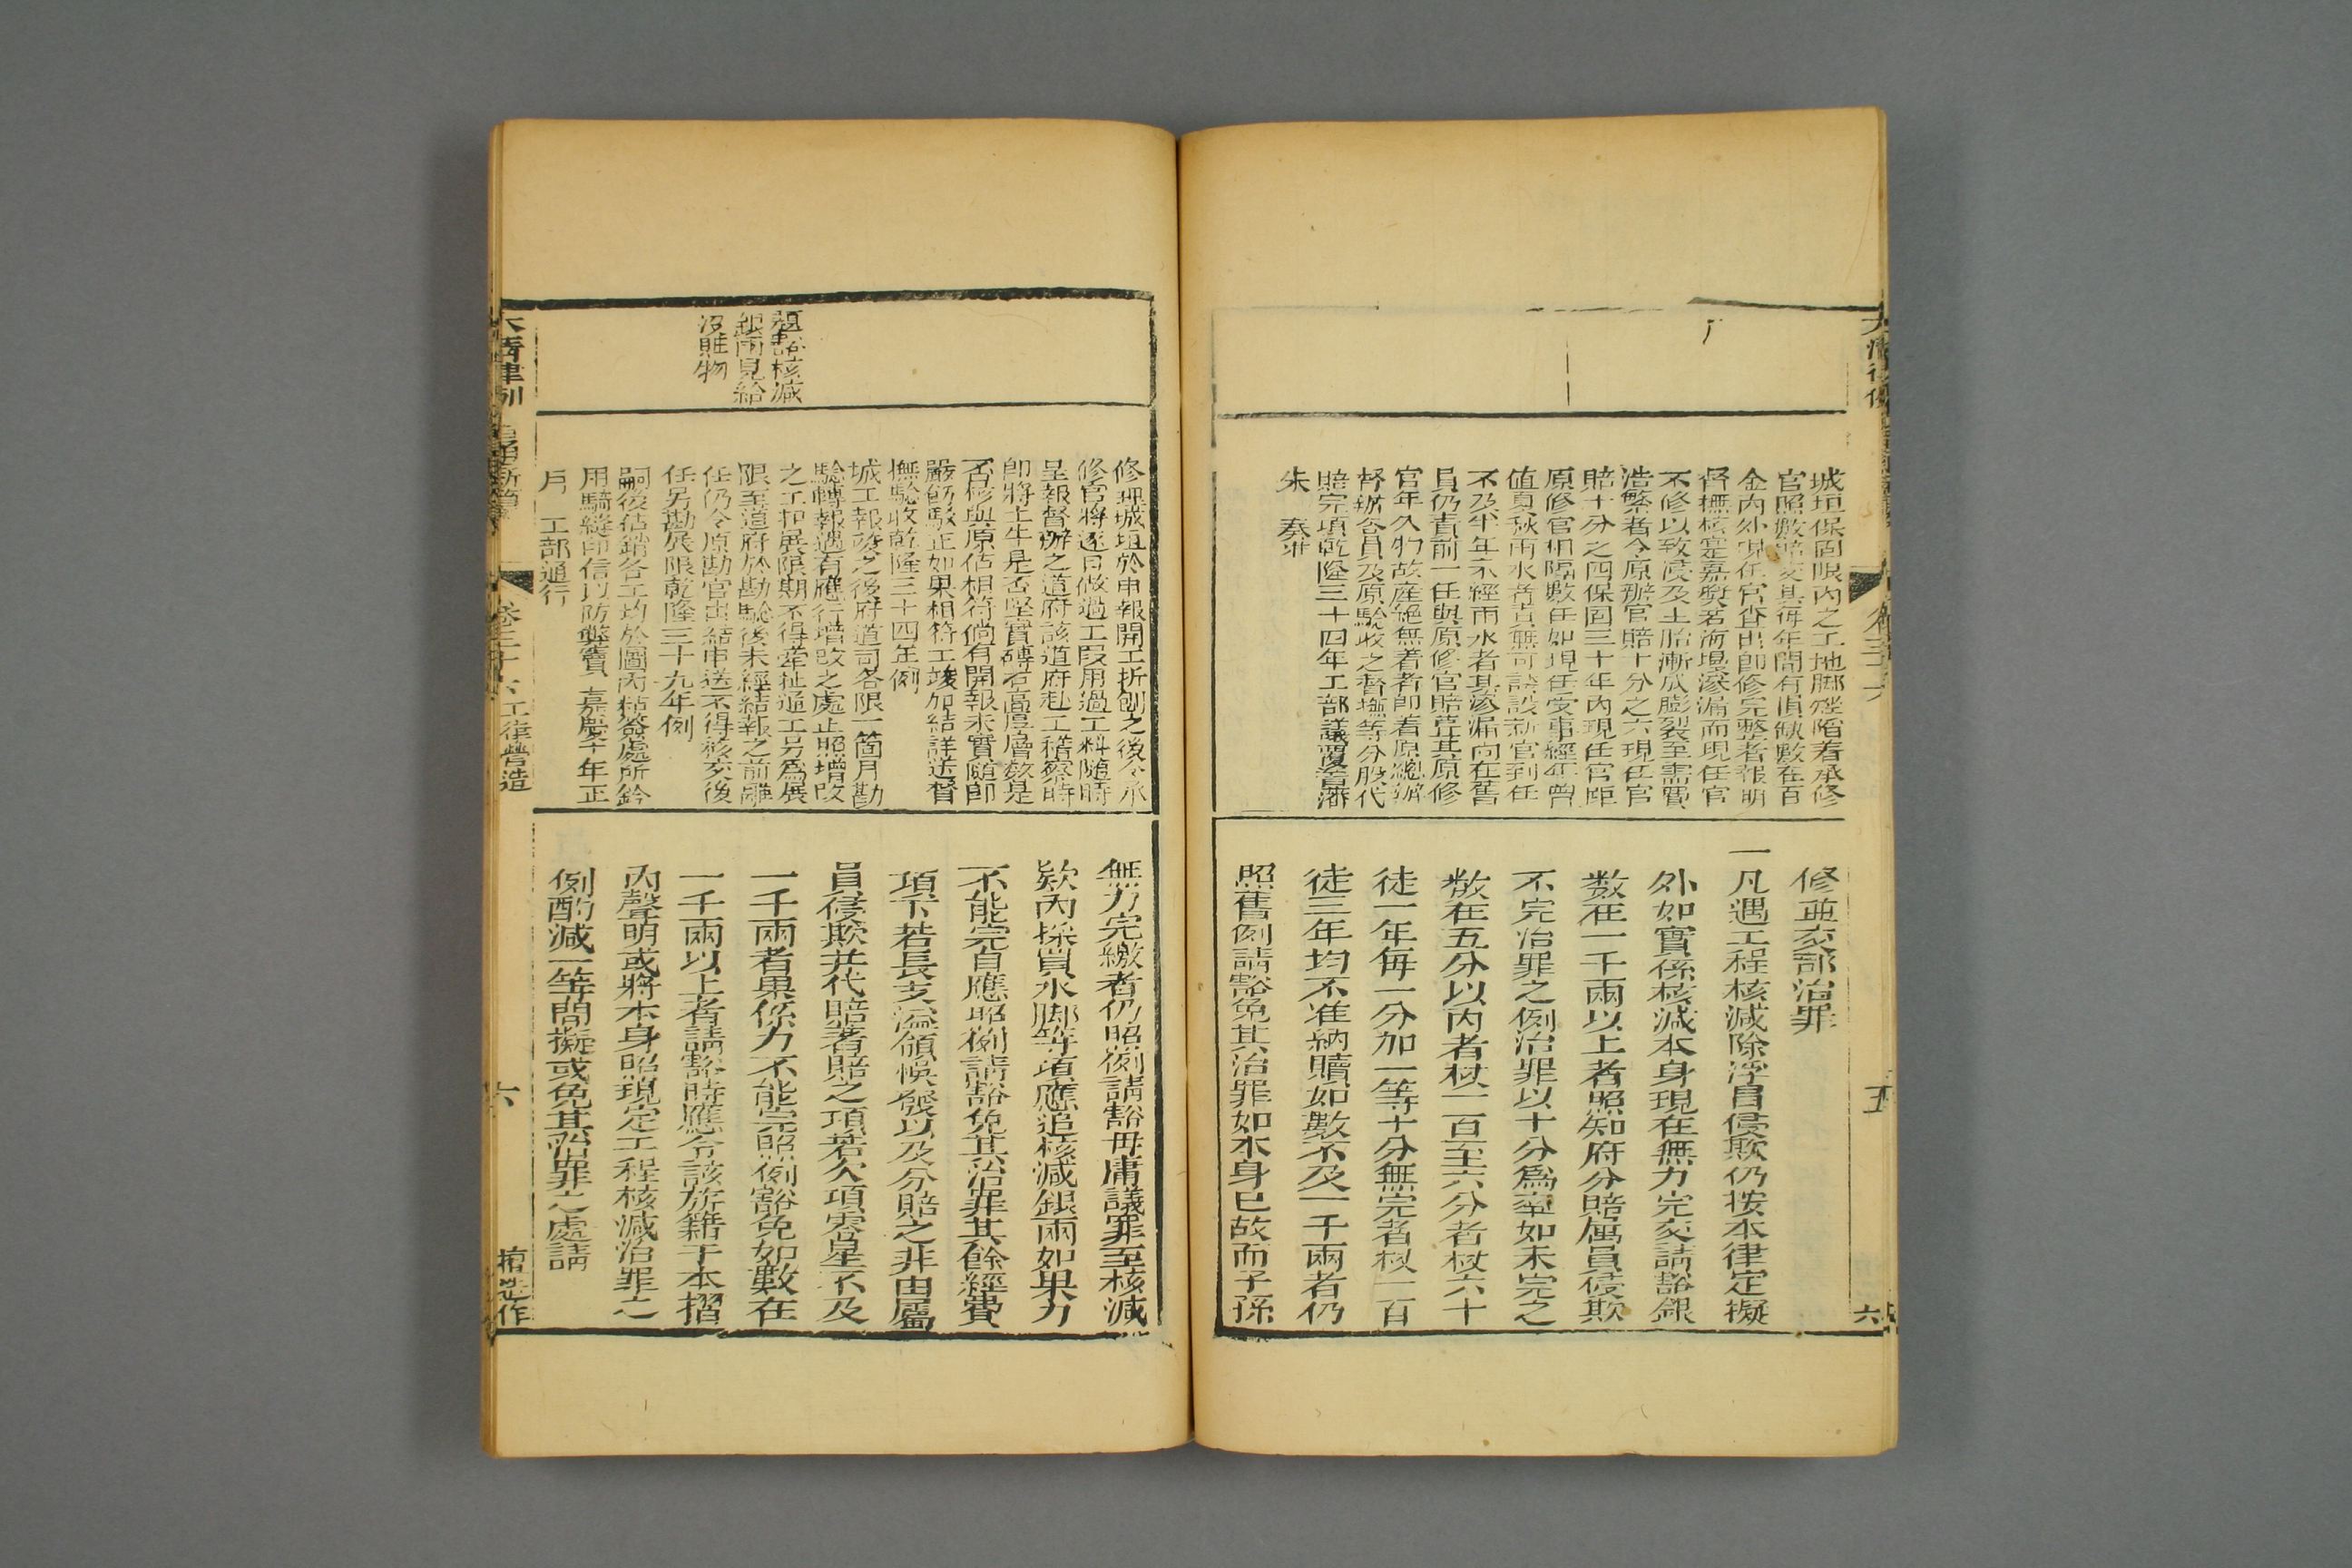 城垣保固限內之工地腳矬陷着承修
官照數賠交其每年間有損缺數在百
金內外現任官音卽修完整者報明
督撫核寔嘉獎若滴塌滲漏而現任官
不修以致浸及土胎漸成膨裂至需費
浩繁者令原辦官賠十分之六現任官
賠十分之四保固三十年內現任官距
原修官相隔數任如現任受事經年曾
值夏秋雨水者責無可諉設新官到任
不及半年不經雨水者其滲漏向在舊
員仍責前一任與原修官賠葺其原修
官年久物故產絕無着者卽着原總辦
督辦各員及原驗收之督撫等分股代
賠完項乾隆三十四年工部議覆
朱 奏准
修並交部治罪
一凡遇工程核減除浮冒侵欺仍按本律定擬
外如實係核減本身現在無力完交請豁銀
數在一千兩以上者照知府分賠屬員侵欺
不完治罪之例治罪以十分爲率如未完之
數在五分以內者杖一百至六分者杖六十
徒一年每一分加一等十分無完者杖一百
徒三年均不准納贖如數不及一千兩者仍
照舊例請豁免其治罪如本身已故而子孫
五
題豁核減
銀兩見給
沒賍物
修理城垣於申報開工折刨之後令承
修官將逐日做過工段用過工料隨時
呈報督辦之道府該道府赴工稽察時
卽將土牛是否堅實磚石高厚層數是
否核與原估相符倘有開報未實隨卽
嚴飭駁正如果相符工竣加結詳送督
撫驗收乾隆三十四年例
城工報竣之後府道司各限一箇月勘
驗轉報遇有應行增改之處止照增改
之工扣展限期不得牽扯通工另爲展
限至道府於勘驗後未經結報之前離
任仍令原勘官出結申送不得移交後
任另勘展限乾隆三十九年例
嗣後估銷各工均於圖內粘簽處所鈐
用騎縫印信以防弊竇 嘉慶十年正
月 工部通行
無力完繳者仍照例請豁毋庸議罪至核減
欵內採買水腳等項應追核減銀兩如果力
不能完自應照例請豁免其治罪其餘經費
項下若長支溢領悞發以及分賠之非由屬
員侵欺并代賠著賠之項若欠項零星不及
一千兩者果係力不能完照例豁免如數在
一千兩以上者請豁時應令該旂籍于本摺
內聲明或將本身照現定工程核減治罪之
例酌減一等問擬或免其治罪之處請
大清律例
卷三十八工律營造
六
擅造作